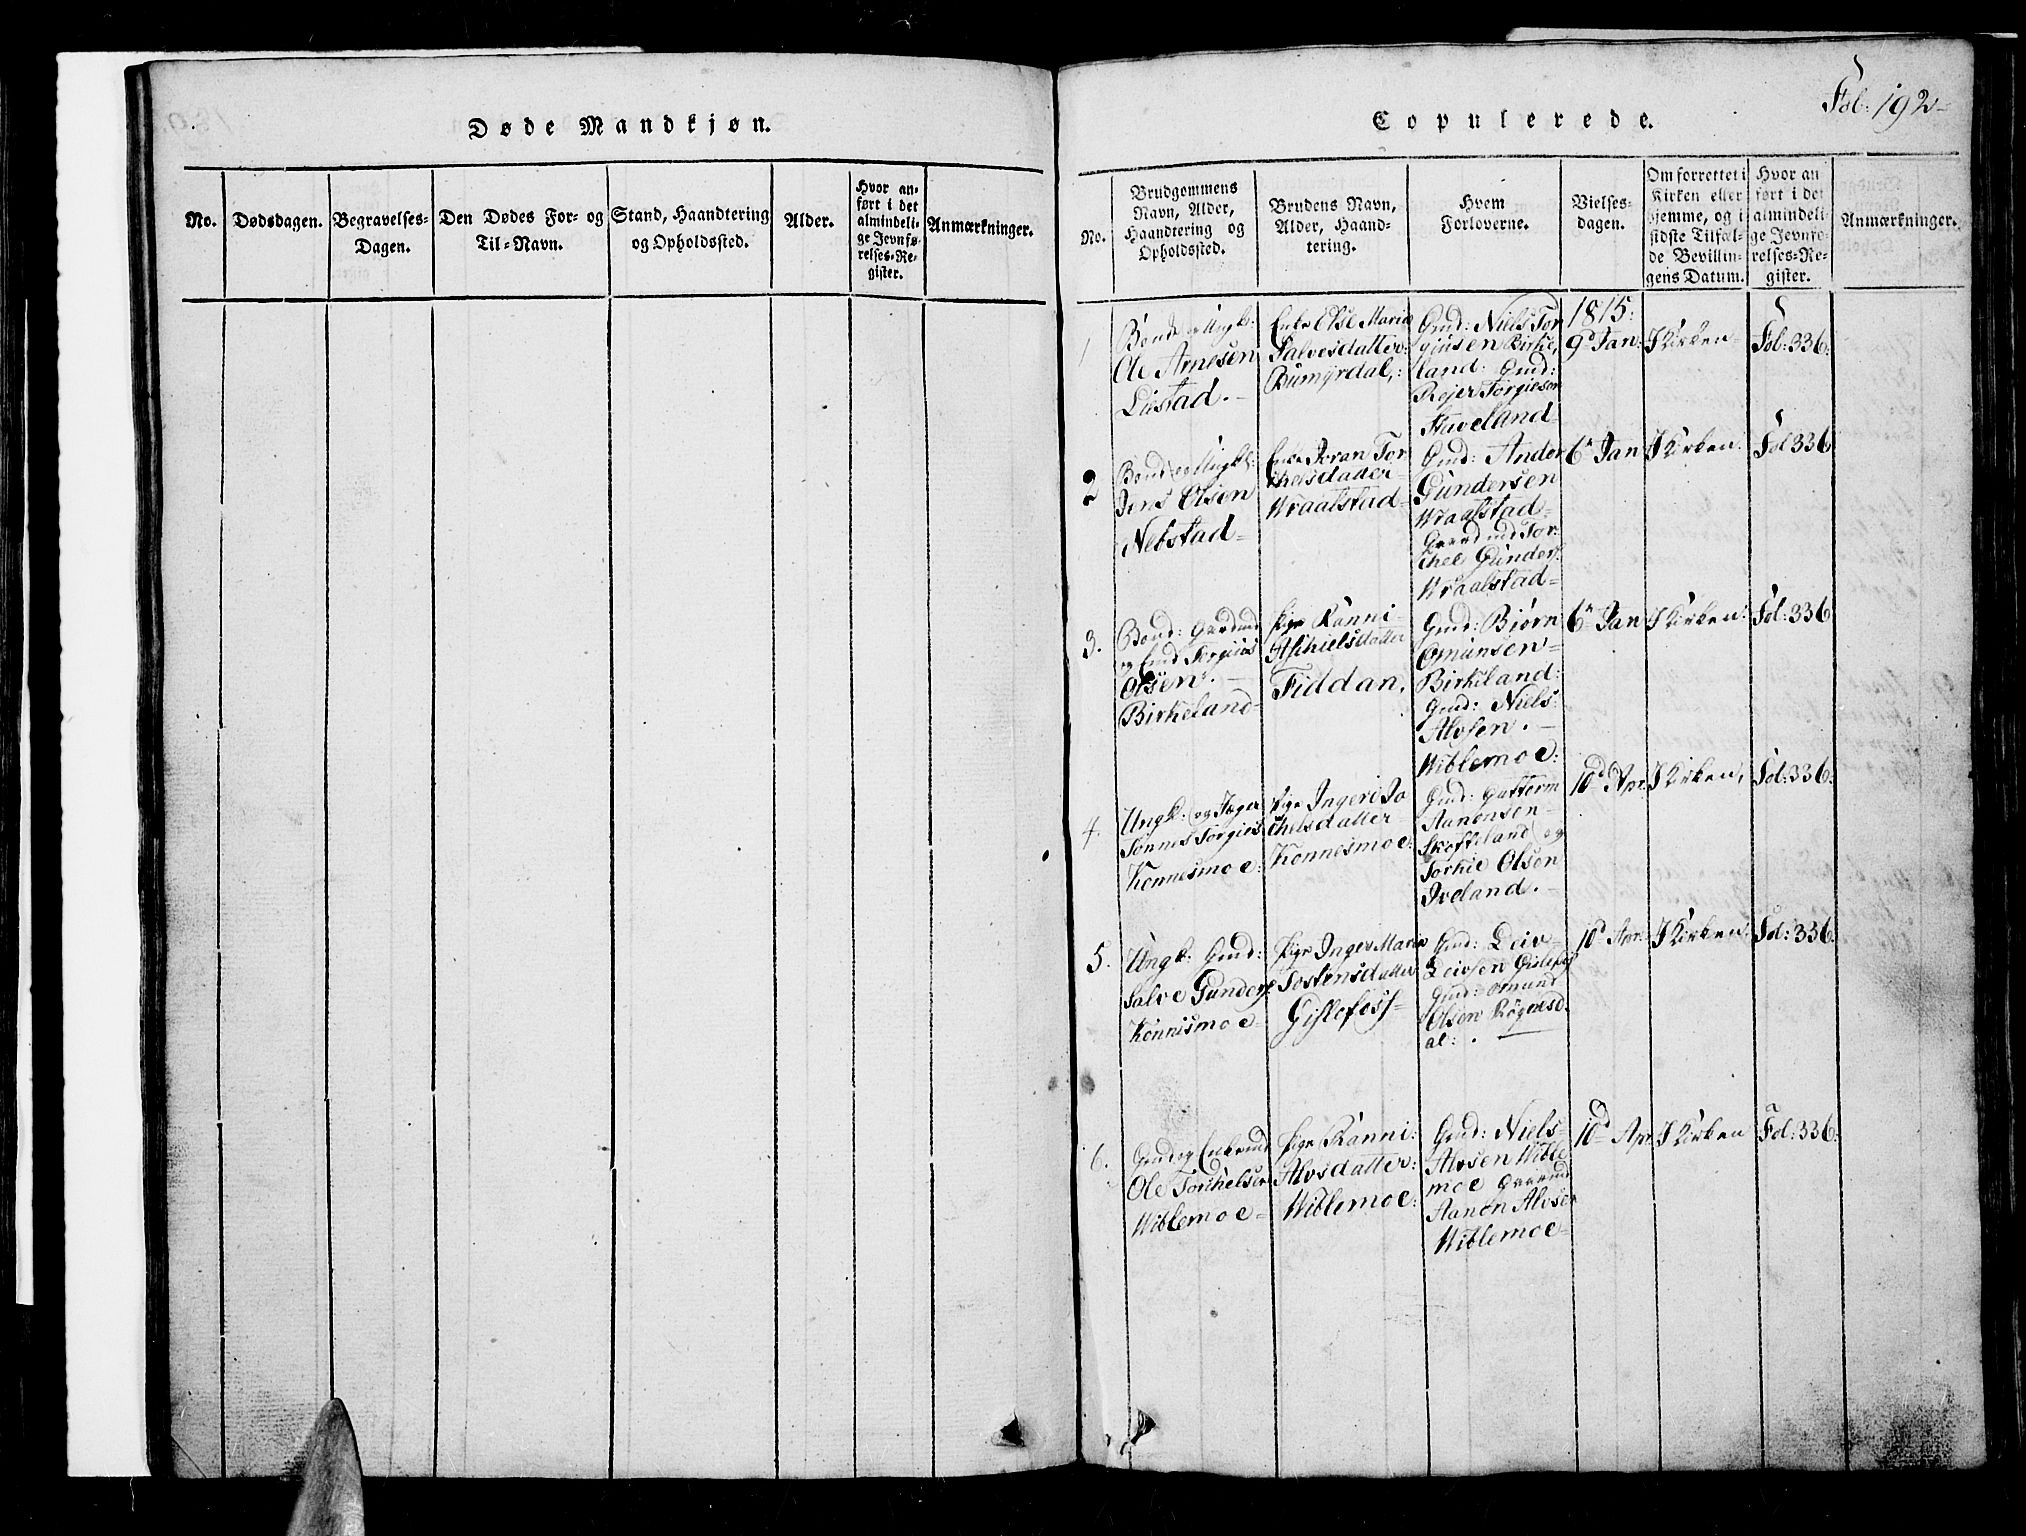 Døde Mandkjøn.
No.
Dødsdagen.
Begravelses-
Dagen.
Den Dødes For- og
Til-Navn.
Stand, Haandtering
og Opholdssted.
Alder.
Hvor an-
ført i det
almindeli-
ge Jevnfø-
relses-Re-
gister.
Anmærkninger.
Fol: 192
Copulerede.
No.
Brudgommens
Navn, Alder,
Haandtering og
Opholdssted.
Brudens Navn,
Alder, Haand-
tering.
Hvem
Forloverne.
Vielses-
dagen.
Om forrettet i
Kirken eller
hjemme, og i
sidste Tilfæl-
de Bevillin-
gens Datum.
Hvor an
ført i det
almindeli-
ge Jevnfø-
relses-Re-
gister.
Anmærkninger.
1
Bond og Ungk:
Ole Arnesen
Listad.
Enke Else Marie
Salvesdatter
Rumyrdal,
Gmd: Niels Tor
giusen Birke,
land Gmd:
Rejer Torgiesen
Haveland
1815:
9d Jan:
I Kirken
Fol: 336:
2
Bond og Ungk:
Jens Olsen
Nebstad
Enke Joran Tor
chelsdatter
Wraalstad
Gmd: Ander
Gundersen
Wraalstad
Tor
chel Gunders
Wraalstad
6 Jan
I Kirken.
Fol 336
3.
Bond:
og Torgius
Olsen.
Birkeland
Pige Ranni
Aschielsdatter
Fiddan,
Gmd: Biørn
Omunsen
Birkeland:
Gmd: Niels
Alvsen.
Wiblemoe:
6 Jan
I Kirken.
Fol: 336
4.
Ungk: og Jæger
Tønnes Torgies
Konnesmoe:
Pige Ingeri Jo
chelsdatter
Konnesmoe:
Gmd: Gutterm
Aanonsen
Skofteland og
Torkie Olsen
Iveland.
10d Apr.
I Kirken,
Fol: 336:
5.
Ungk: Gmd:
Salve Gunders
Konnismoe
Pige Inger Marie
Tostensdatter
Gislefoss
Gmd: Leiv
Leivsen Gislefos
Gmd: Omund
Olsen Røgenesd
al:
10d Apr:
I Kirken.
Fol: 336.
6.
Gmd og Enkemd
Ole Torchelsen
Wiblemoe
Pige Ranni:
Alvsdatter:
Wiblemoe:
Gmd: Niels
Alvsen Wible
moe
Aanon Alvsen
Wiblemoe
10d Apr
I Kirken
Fol: 336: